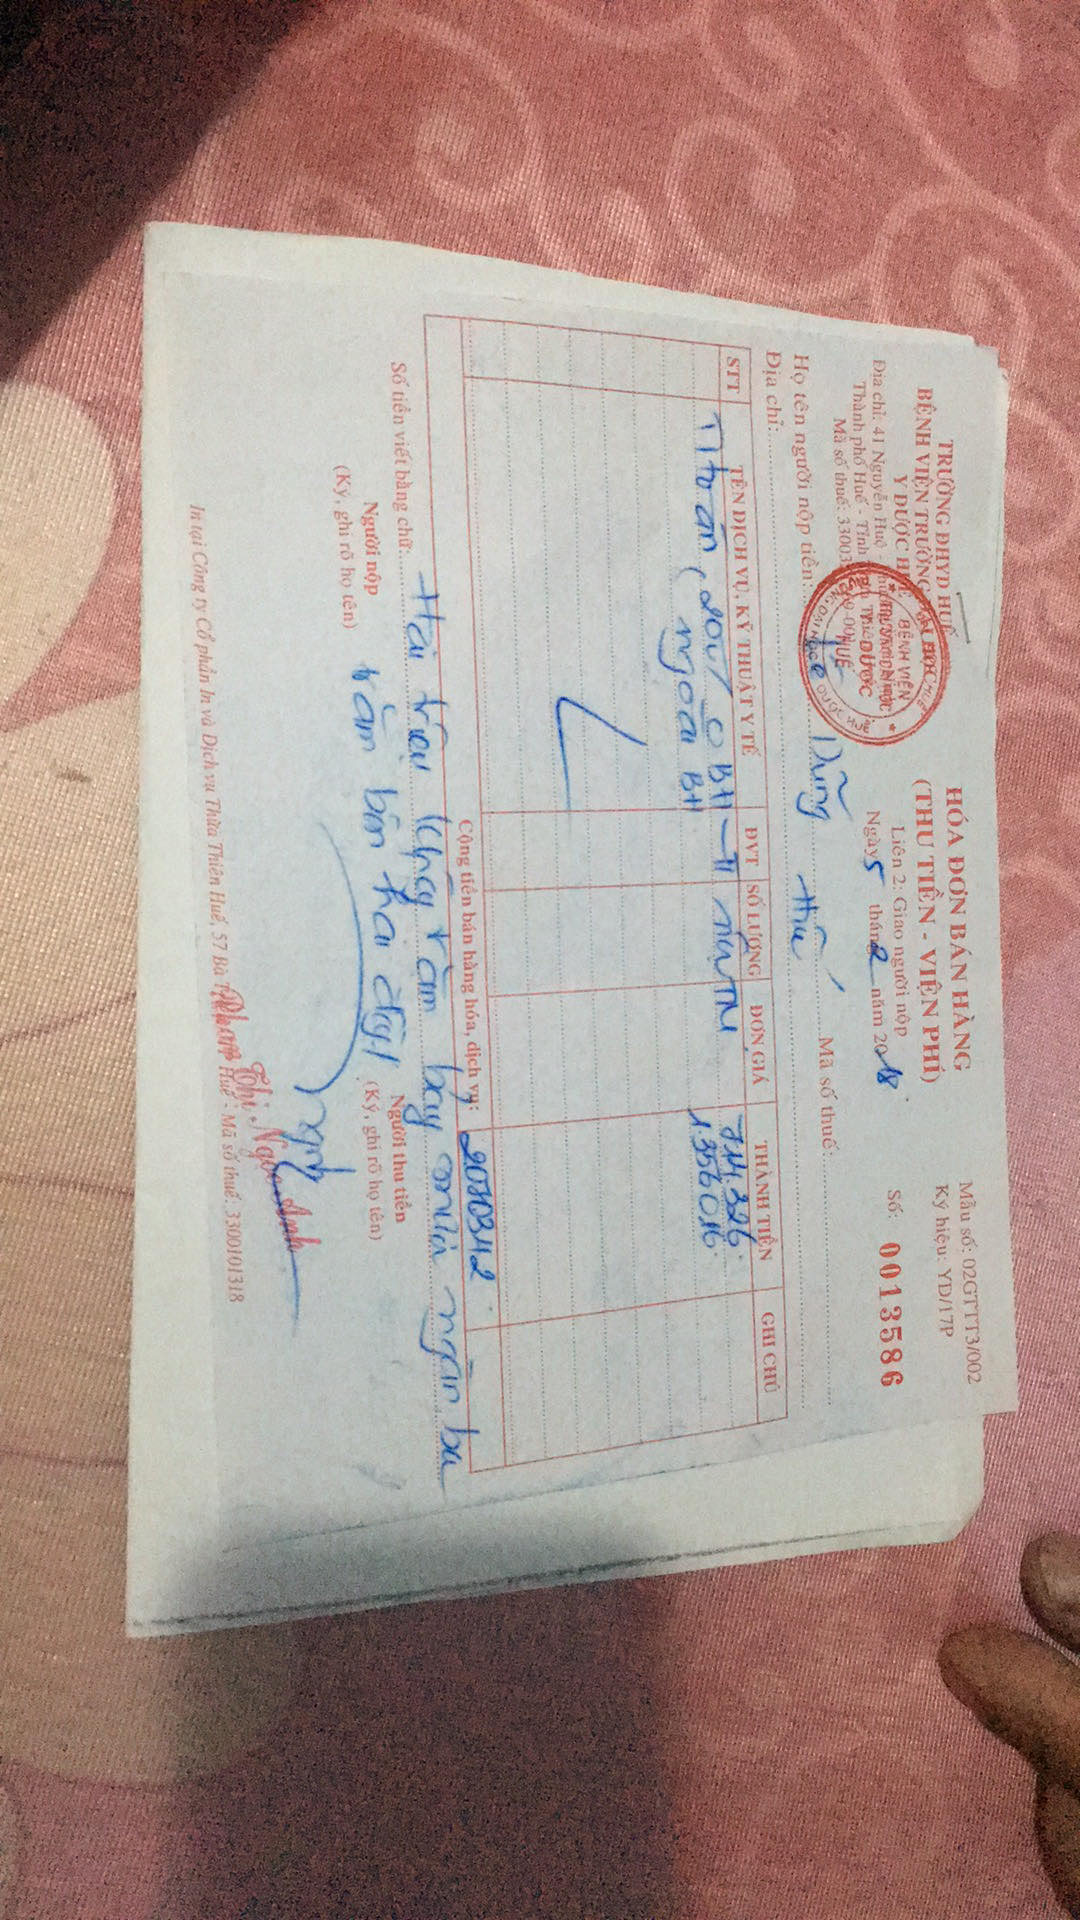 TRƯỜNG ĐHYD HUẾ
BỆNH VIỆN TRƯỜNG
Y DƯỢC
Địa chỉ: 41 Nguyễn Huệ -
Thành phố Huế - Tỉnh
Mã số thuế: 33003
BỆNH VIỆN
HÓA ĐƠN BÁN HÀNG
(THU TIỀN - VIỆN PHÍ)
Liên 2: Giao người nộp
Ngày 5 tháng 2 năm 2018
Mẫu số: 02GTTT3/002
Ký hiệu: YD/17P
Số: 0013586
Họ tên người nộp tiền: Dũng Mã số thuế:
Địa chỉ:
STT TÊN DỊCH VỤ, KỸ THUẬT Y TẾ ĐVT SỐ LƯỢNG ĐƠN GIÁ THÀNH TIỀN GHI CHÚ
20% BH 714.326
ngoài BH 1.356.016
Cộng tiền bán hàng hóa, dịch vụ: 2070342
Số tiền viết bằng chữ: Hai triệu không trăm bảy mươi ngàn ba
trăm bốn hai đồng
Người nộp
(Ký, ghi rõ họ tên)
Người thu tiền
(Ký, ghi rõ họ tên)
Thị Ngọc Anh
In tại Công ty Cổ phần In và Dịch vụ Thừa Thiên Huế, 57 Bà Huế - Mã số thuế: 3300101318